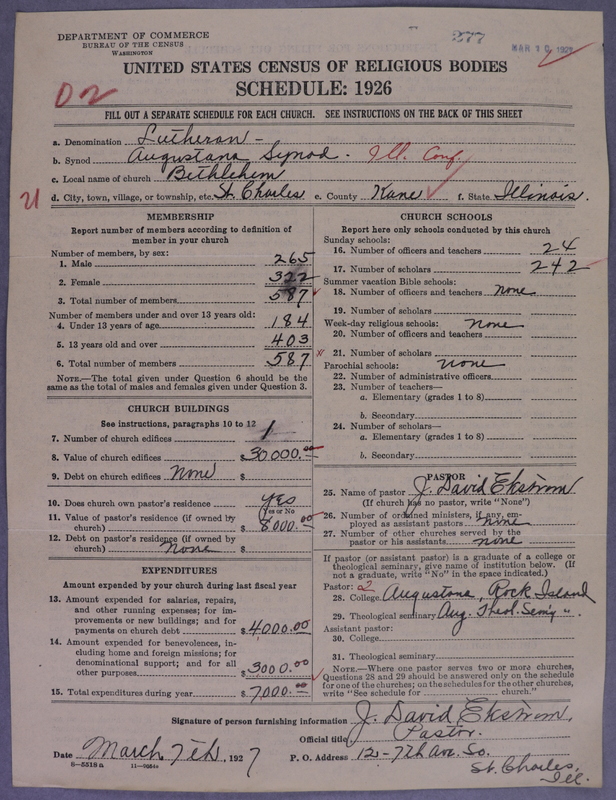 DEPARTMENT OF COMMERCE
BUREAU OF THE CENSUS
WASHINGTON
277
MAR 10 192
UNITED STATES CENSUS OF RELIGIOUS BODIES
SCHEDULE: 1926
D2
FILL OUT A SEPARATE SCHEDULE FOR EACH CHURCH. SEE INSTRUCTIONS ON THE BACK OF THIS SHEET
a. Denomination Lutheran -
b. Synod Augustana Synod. Ill. Conf.
c. Local name of church Bethlehem
21 d. City, town, village, or township, etc. St. Charles e. County Kane f. State Illinois.
MEMBERSHIP
Report number of members according to definition of
member in your church
Number of members, by sex:
1. Male 265
2. Female 322
3. Total number of members 587
Number of members under and over 13 years old:
4. Under 13 years of age 184
5. 13 years old and over 403
6. Total number of members 587
NOTE.—The total given under Question 6 should be the
same as the total of males and females given under Question 3.
CHURCH BUILDINGS
See instructions, paragraphs 10 to 12
7. Number of church edifices 1
8. Value of church edifices $30000.00
9. Debt on church edifices None $
10. Does church own pastor's residence? Yes
Yes or No
11. Value of pastor's residence (if owned by
church) $8000.00
12. Debt on pastor's residence (if owned by
church) None $
EXPENDITURES
Amount expended by your church during last fiscal year
13. Amount expended for salaries, repairs,
and other running expenses; for im-
provements or new buildings; and for
payments on church debt $4000.00
14. Amount expended for benevolences, in-
cluding home and foreign missions; for
denominational support; and for all
other purposes $3000.00
15. Total expenditures during year $7000.00
CHURCH SCHOOLS
Report here only schools conducted by this church
Sunday schools:
16. Number of officers and teachers 24
17. Number of scholars 242
Summer vacation Bible schools:
18. Number of officers and teachers none
19. Number of scholars
Week-day religious schools: none
20. Number of officers and teachers
21. Number of scholars
Parochial schools: none
22. Number of administrative officers
23. Number of teachers—
a. Elementary (grades 1 to 8)
b. Secondary
24. Number of scholars—
a. Elementary (grades 1 to 8)
b. Secondary
PASTOR
25. Name of pastor J. David Ekstrom
(If church has no pastor, write "None")
26. Number of ordained ministers, if any, em-
ployed as assistant pastors none
27. Number of other churches served by the
pastor or his assistants none
If pastor (or assistant pastor) is a graduate of a college or
theological seminary, give name of institution below. (If
not a graduate, write "No" in the space indicated.)
Pastor: 2
28. College Augustana, Rock Island
29. Theological seminary Aug. Theol. Sem'y "
Assistant pastor:
30. College
31. Theological seminary
NOTE.—Where one pastor serves two or more churches,
Questions 28 and 29 should be answered only on the schedule
for one of the churches; on the schedules for the other churches,
write "See schedule for church."
Signature of person furnishing information J. David Ekstrom,
Official title Pastor.
Date March 7th, 1927 P. O. Address 12-7th Ave. So.
8-5518a 11-9054a St. Charles,
Ill.